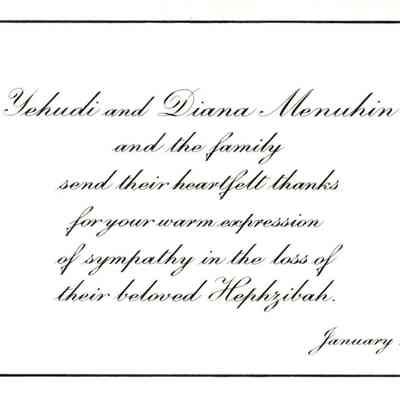 Yehudi and Diana Menuhin
and the family
send their heartfelt thanks
for your warm expression
of sympathy in the loss of
their beloved Hephzibah.
January